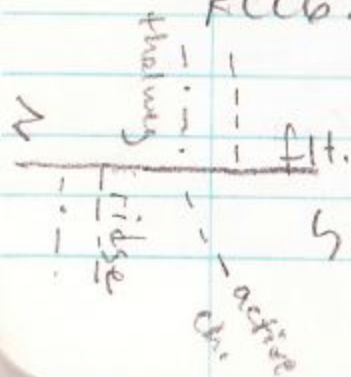 thalweg
N
flt.
ridge
S
active
ch.